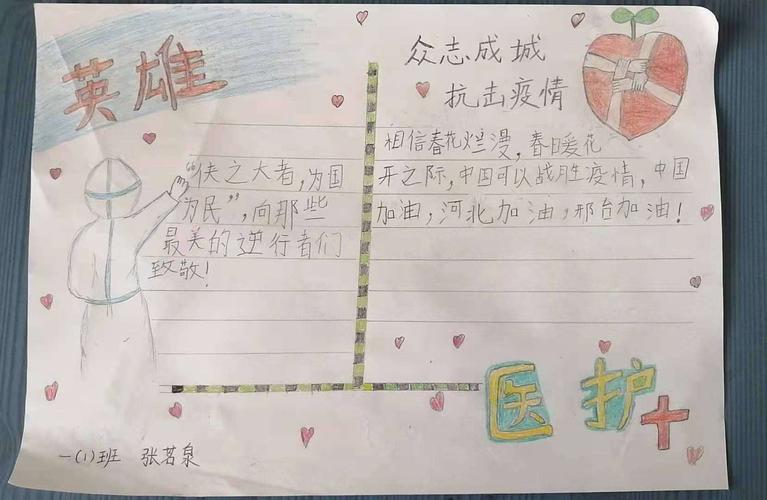 英雄
众志成城
抗击疫情
“侠之大者,为国
为民”,向那些
最美的逆行者们
致敬!
相信春花烂漫,春日暖花
开之际,中国可以战胜疫情,中国
加油,河北加油,邢台加油!
医护
一(1)班 张茗泉